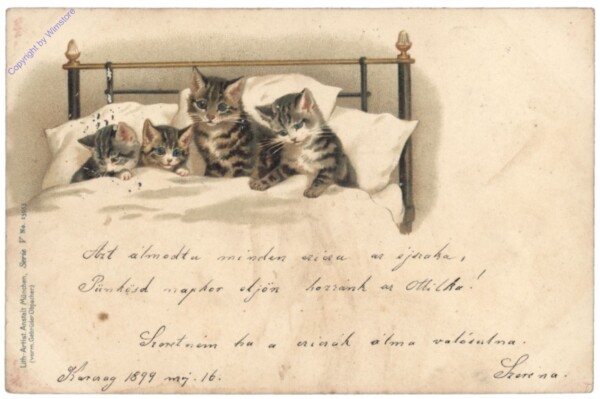 Copyright by Wimstore
Lith.-Artist. Anstalt München, Serie V No. 1585.
(vorm. Gebrüder Obpacher)
Azt álmodta minden czicza az éjszaka,
Pünkösd napkor eljön hozzánk az Milka!
Szeretném ha a cziczák álma valósulna.
1899 máj. 16.
Szeréna.